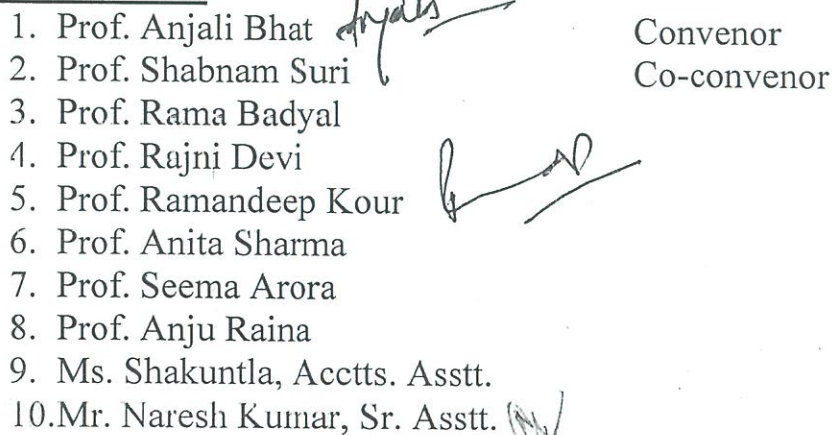 1. Prof. Anjali Bhat Anjali Convenor
2. Prof. Shabnam Suri Co-convenor
3. Prof. Rama Badyal
4. Prof. Rajni Devi
5. Prof. Ramandeep Kour
6. Prof. Anita Sharma
7. Prof. Seema Arora
8. Prof. Anju Raina
9. Ms. Shakuntla, Acctts. Asstt.
10.Mr. Naresh Kumar, Sr. Asstt.